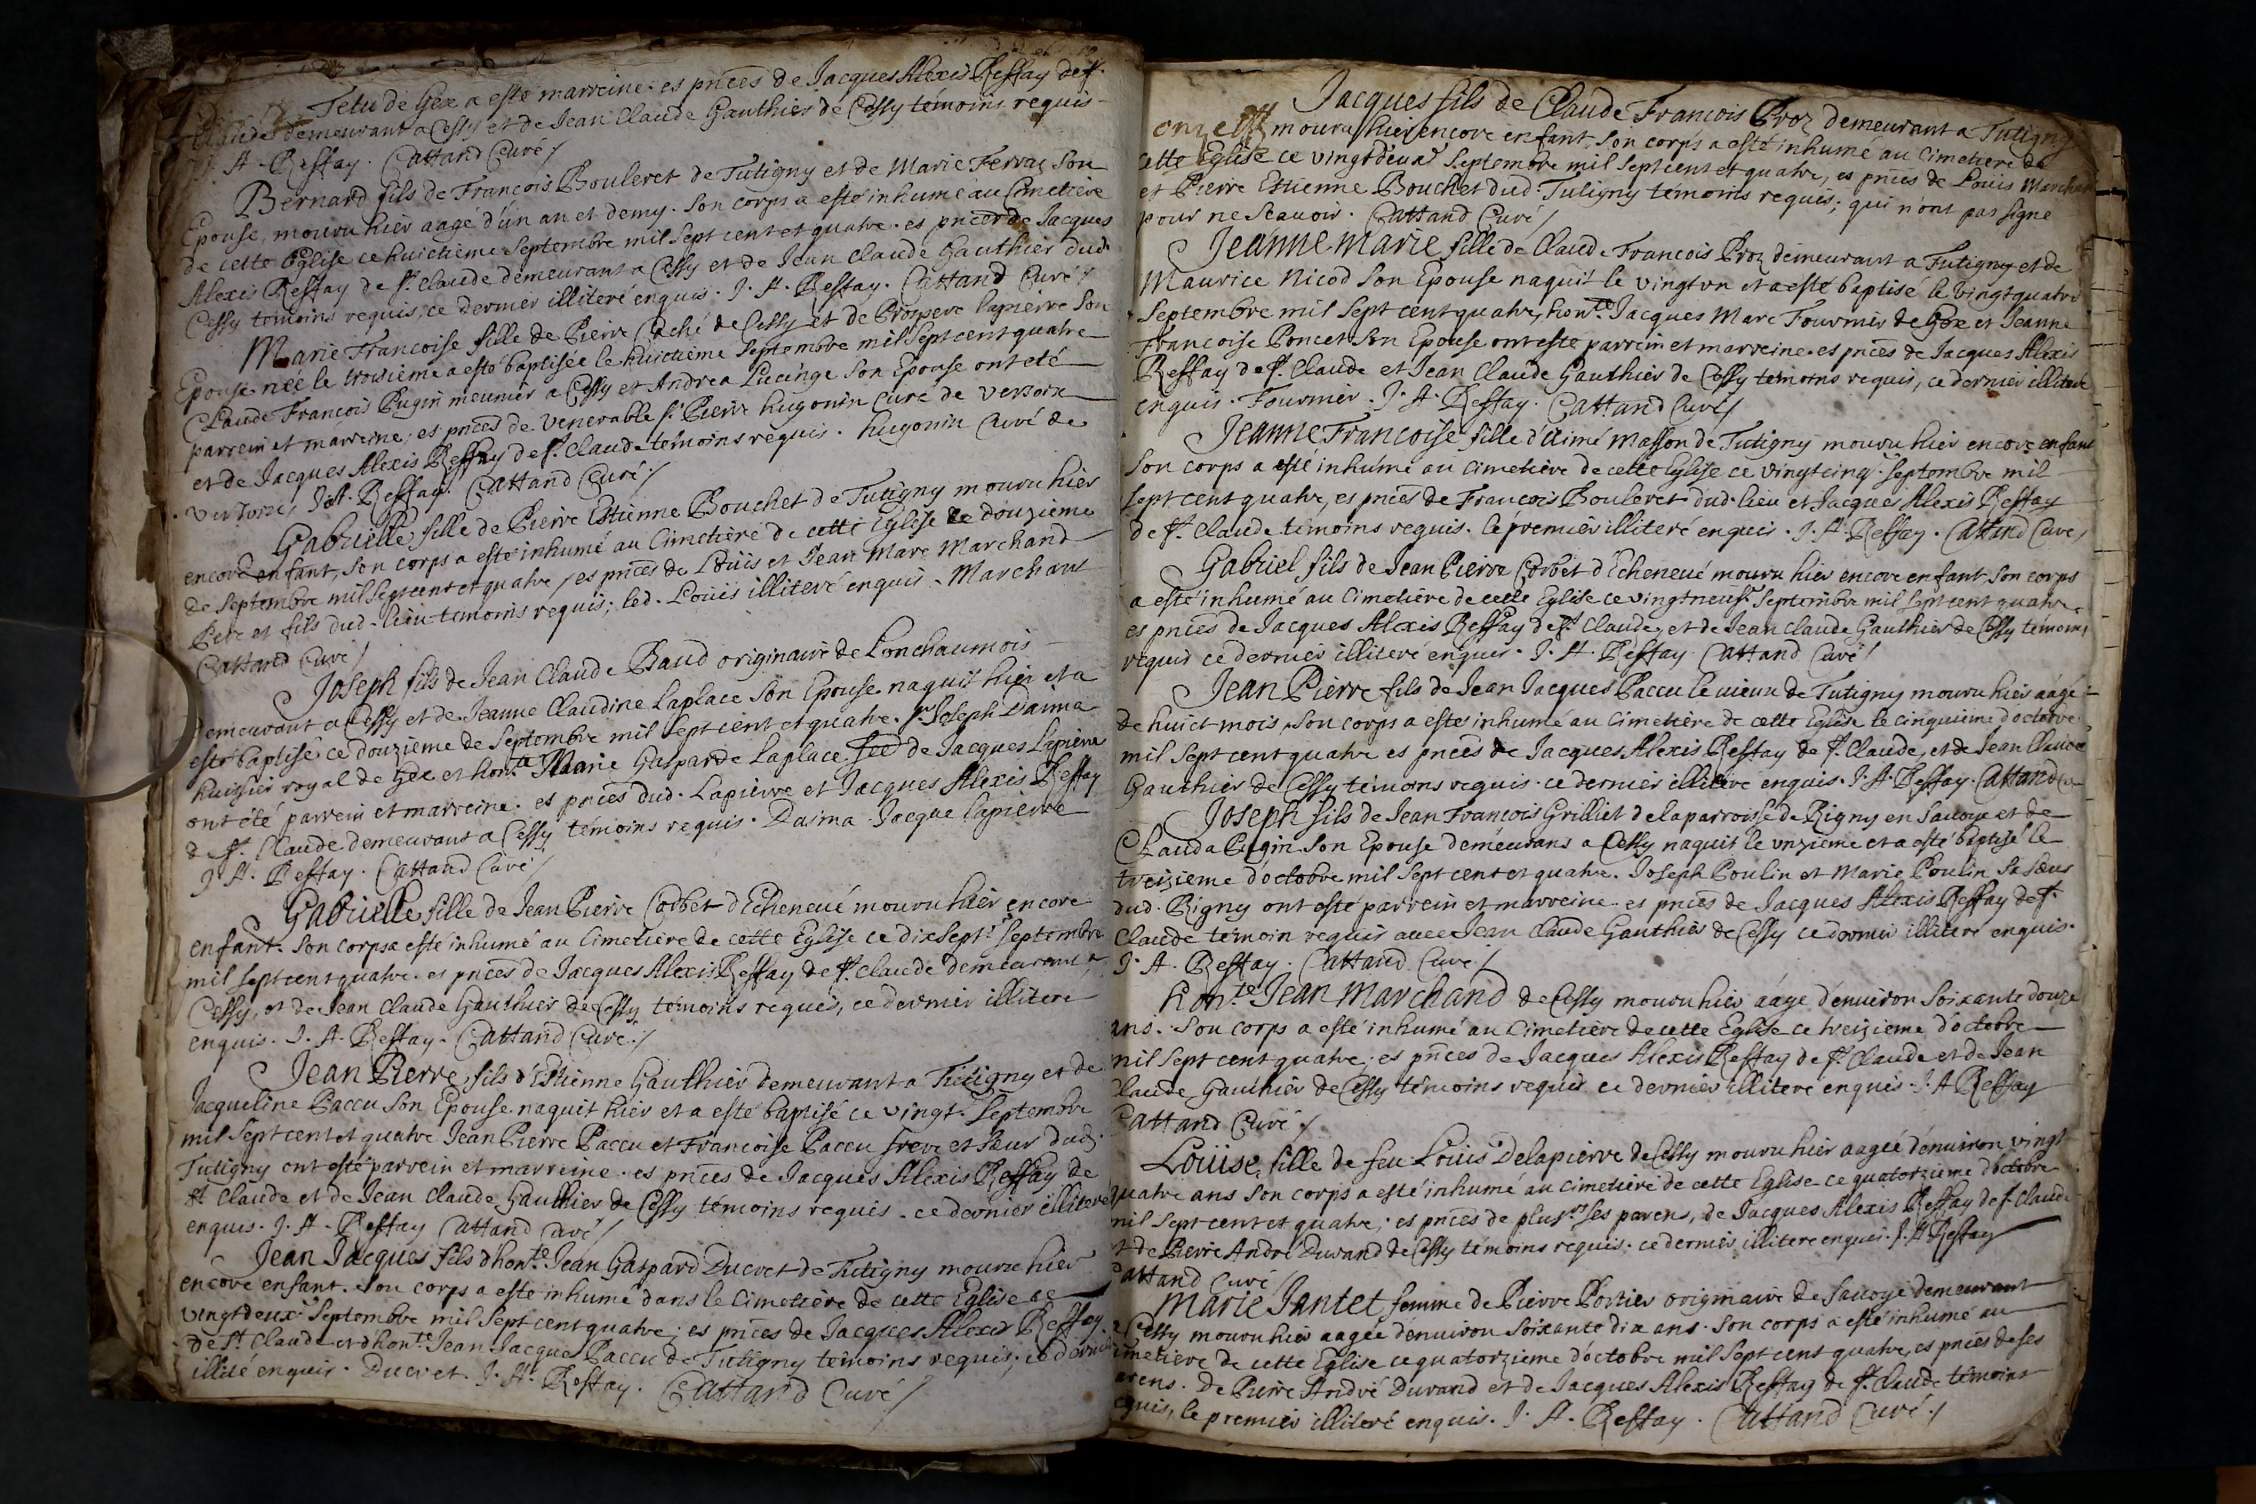 Tetu de Gex a esté marreine. es pn̄ces de Jacques Alexis Reffay de St.
Claude demeurant a Cessy et de Jean Claude Gauthier de Cessy témoins requis
J. A. Reffay. Cattand Curé /
Bernard fils de Francois Bouleret de Tutigny et de Marie Fervaz son
Epouse, mouru hier aage d'un an et demy. Son corps a esté inhumé au Cimetière
de cette Eglise ce huictième Septembre mil Sept cent et quatre. es pn̄ces de Jacques
Alexis Reffay de St. Claude demeurant a Cessy et de Jean Claude Gauthier dud.
Cessy temoins requis, ce dernier illiteré enquis. J. A. Reffay. Cattand Curé /
Marie Francoise fille de Pierre Caché de Cessy et de Prospere lapierre Son
Epouse née le troisieme a esté baptisée le huictieme Septembre mil Sept cent quatre
Claude Francois Pugin meunier a Cessy et Andrea Lucinge Son Epouse ont eté
parrein et marreine; es pn̄ces de venerable Sr. Pierre hugonin Curé de versoix
et de Jacques Alexis Reffay de St. Claude témoins requis. hugonin Curé de
J. A. Reffay. Cattand Curé /
Gabrielle fille de Pierre Estienne Bouchet de Tutigny mouru hier
encore enfant, Son corps a esté inhumé au Cimetière de cette Eglise le douzieme
de Septembre mil Sept cent et quatre / es pn̄ces de Loüis et Jean Marc Marchand
Pere et fils dud. lieu temoins requis; led. Loüis illiteré enquis. Marchant
Cattand Curé /
Joseph fils de Jean Claude Baud originaire de Lonchaumois
demeurant a Cessy et de Jeanne Claudine Laplace Son Epouse naquit hier et a
esté baptisé ce douzieme de Septembre mil Sept cent et quatre. Sr. Joseph Daima
huissier royal de Gex et hon.te Marie Gasparde Laplace de Jacques Lapierre
ont été parrein et marreine. es pn̄ces dud. Lapierre et Jacques Alexis Reffay
de St. Claude demeurant a Cessy témoins requis. Daima Jacque lapierre
J. A. Reffay. Cattand Curé /
Gabrielle fille de Jean Pierre Corbet d'Echenevé mouru hier encore
enfant. Son corps a esté inhumé au Cimetiere de cette Eglise ce dix Sept.e Septembre
mil Sept cent quatre. es pn̄ces de Jacques Alexis Reffay de St. Claude demeurant a
Cessy, et de Jean Claude Gauthier de Cessy témoins requis, ce dernier illiteré
enquis. J. A. Reffay. Cattand Curé. /
Jean Pierre, fils d'Estienne Gauthier demeurant a Tutigny et de
Jacqueline Paccu Son Epouse naquit hier et a esté baptisé ce vingt. Septembre
mil Sept cent et quatre Jean Pierre Paccu et Francoise Paccu frere et Sœur dud.
Tutigny ont esté parrein et marreine. es pn̄ces de Jacques Alexis Reffay de
St. Claude et de Jean Claude Gauthier de Cessy témoins requis. ce dernier illiteré
enquis. J. A. Reffay Cattand Curé /
Jean Jacques fils d'hon.te Jean Gaspard Ducret de Tutigny mouru hier
encore enfant. Son corps a esté inhumé dans le Cimetière de cette Eglise ce
vingtdeux.e Septembre mil Sept cent quatre; es pn̄ces de Jacques Alexis Reffay
de St. Claude et d'hon.te Jean Jacque Paccu de Tutigny temoins requis; ce dernier
illité enquis. Ducret. J. A. Reffay. Cattand Curé /
Jacques fils de Claude Francois Proz demeurant a Tutigny
mouru hier encore enfant, Son corps a esté inhumé au Cimetiere de
cette Eglise ce vingtdeux.e Septembre mil Sept cent et quatre, es pn̄ces de Loüis Marchant
et Pierre Estienne Bouchet dud. Tutigny témoins requis; qui n'ont pas signé
pour ne Scavoir. Cattand Curé /
Jeanne Marie fille de Claude Francois Proz demeurant a Tutigny et de
Maurice Nicod Son Epouse naquit le vingtvn et a esté baptisé le vingtquatre
Septembre mil Sept cent quatre, hon.te Jacques Marc Fournier de Gex et Jeanne
Francoise Poncet Son Epouse ont esté parrein et marreine. es pn̄ces de Jacques Alexis
Reffay de St. Claude et Jean Claude Gauthier de Cessy témoins requis, ce dernier illiteré
enquis. Fournier. J. A. Reffay. Cattand Curé /
Jeanne Francoise fille d'Aimé Masson de Tutigny mouru hier encore enfant
Son corps a esté inhumé au Cimetière de cette Eglise ce vingtcinq.e Septembre mil
Sept cent quatre, es pn̄ces de Francois Bouleret dud. lieu et Jacques Alexis Reffay
de St. Claude témoins requis. le premier illiteré enquis. J. A. Reffay. Cattand Curé /
Gabriel fils de Jean Pierre Corbet d'Echenevé mouru hier encore enfant, Son corps
a esté inhumé au Cimetière de cette Eglise ce vingtneuf.e Septembre mil Sept cent quatre.
es pn̄ces de Jacques Alexis Reffay de St. Claude, et de Jean Claude Gauthier de Cessy témoins
requis ce dernier illiteré enquis. J. A. Reffay. Cattand Curé /
Jean Pierre fils de Jean Jacques Paccu le vieux de Tutigny mouru hier aagé
de huict mois, Son corps a esté inhumé au Cimetière de cette Eglise le cinquieme d'octobre
mil Sept cent quatre es pn̄ces de Jacques Alexis Reffay de St. Claude, et de Jean Claude
Gauthier de Cessy témoins requis. ce dernier illiteré enquis. J. A. Reffay. Cattand
Joseph fils de Jean Francois Grilliet de la parroisse de Rigny en Savoye et de
Clauda Pugin Son Epouse demeurans a Cessy naquit le vnzieme et a esté baptisé le
treizieme d'octobre mil Sept cent et quatre. Joseph Poulin et Marie Poulin Sa Sœur
dud. Rigny ont esté parrein et marreine. es pn̄ces de Jacques Alexis Reffay de St.
Claude témoin requis avec Jean Claude Gauthier de Cessy ce dernier illiteré enquis.
J. A. Reffay. Cattand Curé. /
hon.te Jean Marchand de Cessy mouru hier aagé d'enuiron Soixante douze
ans. Son corps a esté inhumé au Cimetière de cette Eglise ce treizieme d'octobre
mil Sept cent quatre; es pn̄ces de Jacques Alexis Reffay de St. Claude et de Jean
Claude Gauthier de Cessy témoins requis ce dernier illiteré enquis. J. A Reffay
Cattand Curé. /
Loüise fille de feu Loüis Delapierre de Cessy mouru hier aagée d'enuiron vingt
quatre ans Son corps a esté inhumé au Cimetiere de cette Eglise ce quatorzieme d'octobre
mil Sept cent et quatre; es pn̄ces de plus.rs ses parens, de Jacques Alexis Reffay de St. Claude
et de Pierre André Durand de Cessy témoins requis. ce dernier illiteré enquis. J. A Reffay
Cattand Curé /
Marie Jantet femme de Pierre Portier originaire de Savoye demeurant
a Cessy mouru hier aagée d'enuiron Soixante dix ans. Son corps a esté inhumé au
Cimetiere de cette Eglise ce quatorzieme d'octobre mil Sept cent quatre, es pn̄ces de ses
parens. De Pierre André Durand et de Jacques Alexis Reffay de St. Claude témoins
requis, le premier illiteré enquis. J. A. Reffay. Cattand Curé. /